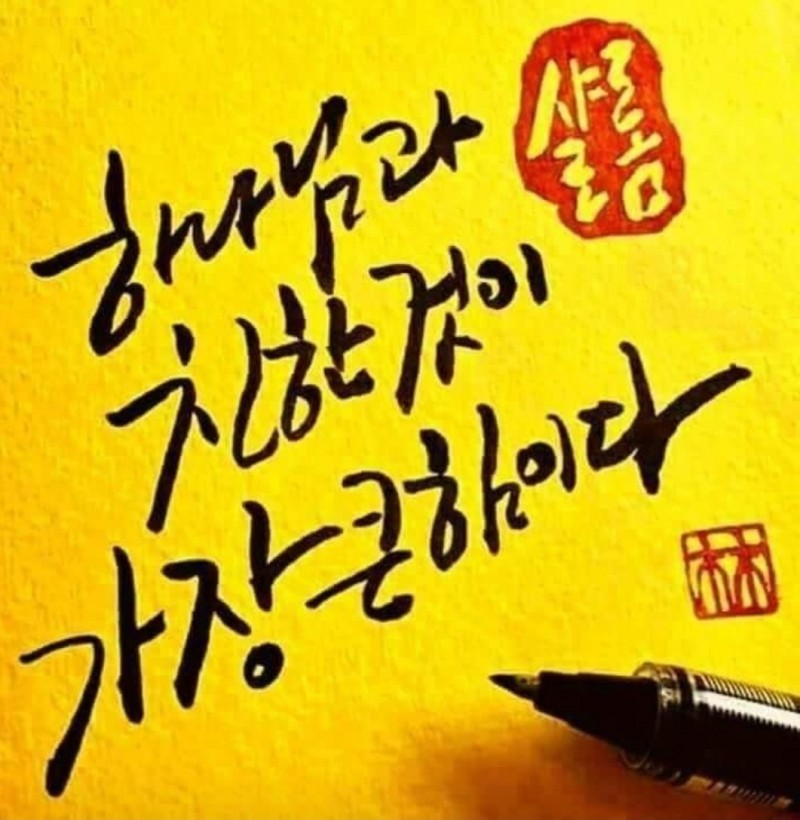 샬롬
하나님과
친한 것이
가장 큰 힘이다
林